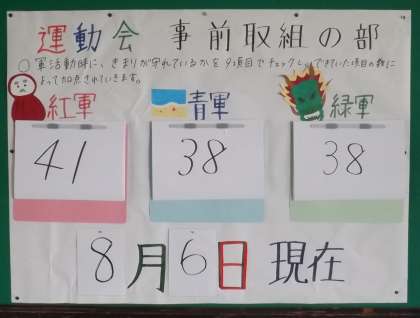 運動会 事前取組の部
○軍活動時に、きまりが守れているかを9項目でチェックし、できていた項目の数に
よって加点されていきます。
紅軍 青軍 緑軍
41 38 38
8月6日現在